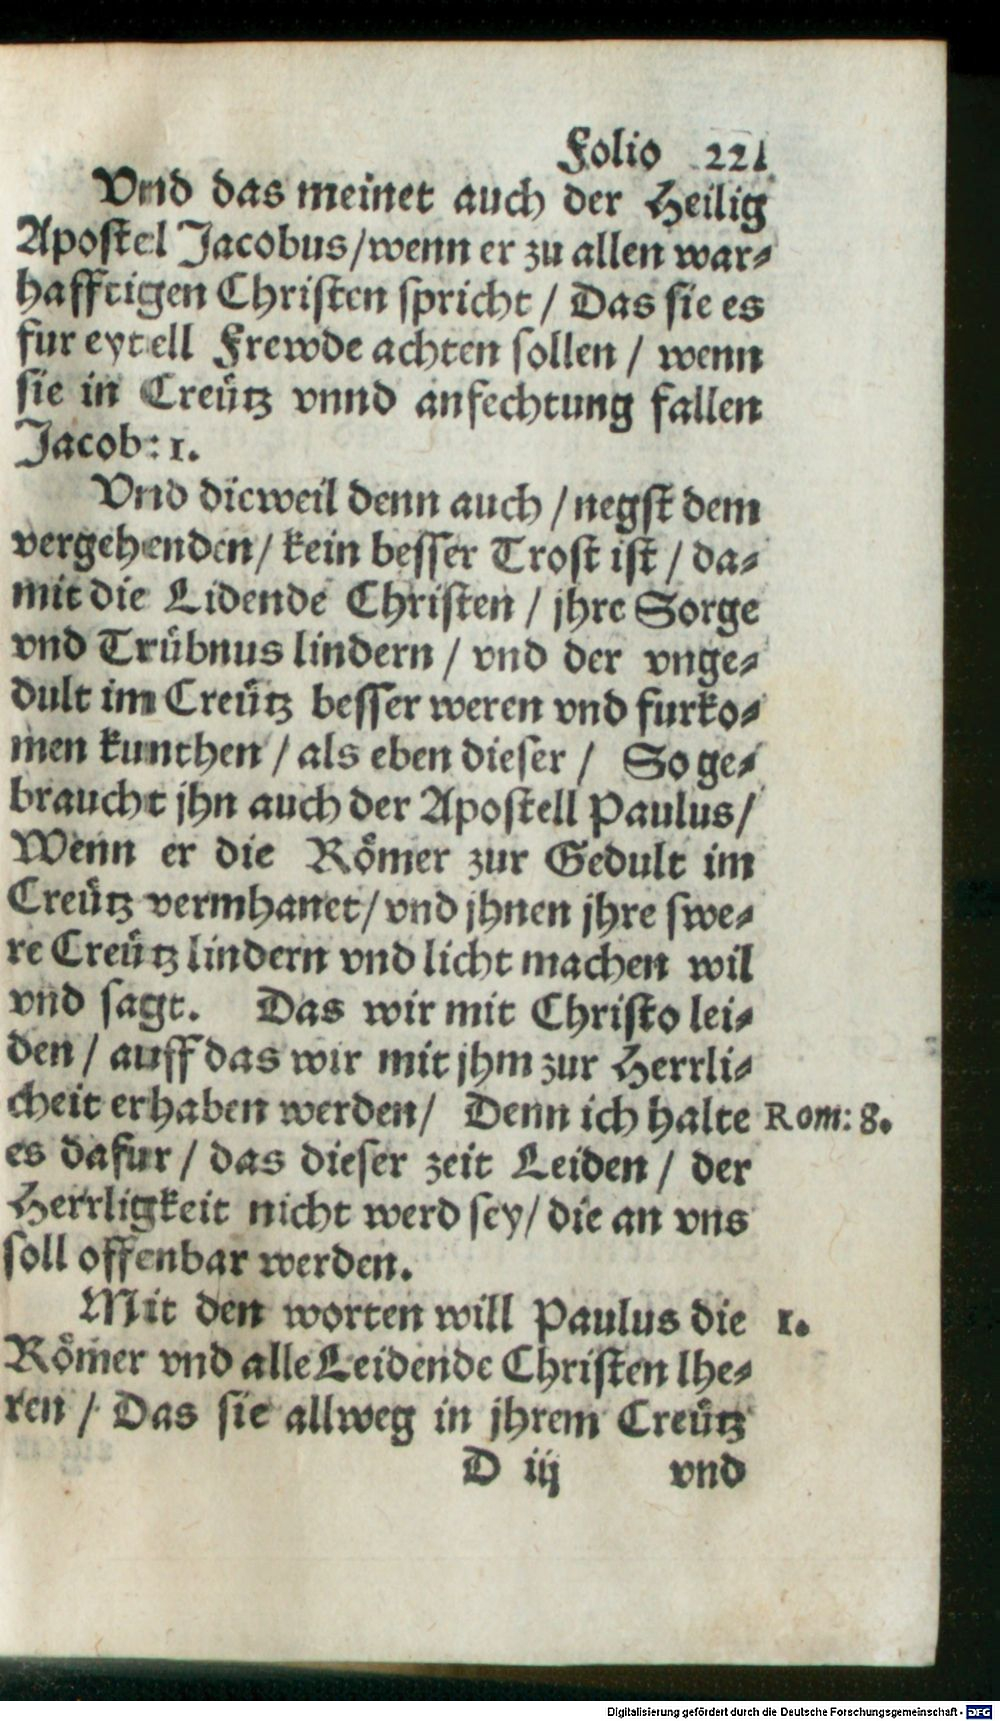 Folio 221
Vnd das meinet auch der Heilig
Apostel Jacobus/wenn er zu allen war⸗
hafftigen Christen spricht / Das sie es
fur eytell Frewde achten sollen / wenn
sie in Creütz vnnd anfechtung fallen
Jacob: 1.
Vnd dieweil denn auch / negst dem
vergehenden/ kein besser Trost ist / da⸗
mit die Lidende Christen / jhre Sorge
vnd Trübnus lindern / vnd der vnge⸗
dult im Creütz besser weren vnd furko⸗
men kunthen / als eben dieser / So ge⸗
braucht jhn auch der Apostell Paulus/
Wenn er die Römer zur Gedult im
Creütz vermhanet/ vnd jhnen jhre swe⸗
re Creütz lindern vnd licht machen wil
vnd sagt. Das wir mit Christo lei⸗
den / auff das wir mit jhm zur Herrli⸗
cheit erhaben werden/ Denn ich halte Rom: 8.
es dafur / das dieser zeit Leiden / der
Herrligkeit nicht werd sey/ die an vns
soll offenbar werden.
Mit den worten will Paulus die 1.
Römer vnd alle Leidende Christen lhe⸗
ren / Das sie allweg in jhrem Creütz
D iij vnd
Digitalisierung gefördert durch die Deutsche Forschungsgemeinschaft - DFG